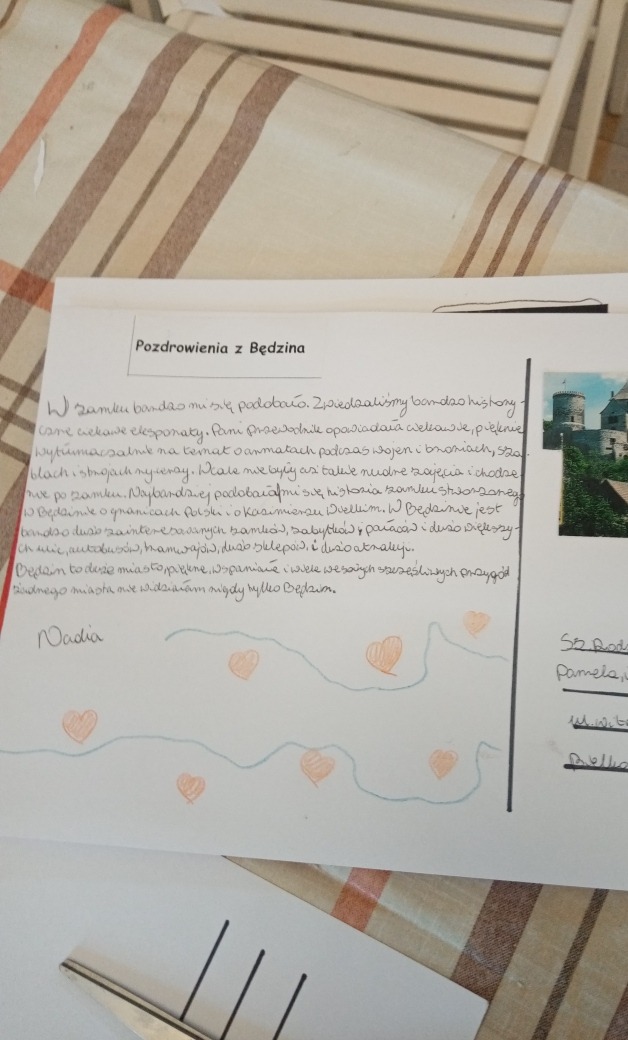 Pozdrowienia z Będzina
W zamku bardzo mi się podobało. Zwiedzaliśmy bardzo history-
czne ciekawe eksponaty. Pani przewodnik opowiadała ciekawie, pięknie
wytłumaczalnie na temat o armatach podczas wojen i broniach, sza
blach i strojach rycerzy. Wcale nie były aż takie nudne zajęcia i chodze
nie po zamku. Najbardziej podobała mi się historia zamku stworzonego
w Będzinie o granicach Polski i o Kazimierzu Wielkim. W Będzinie jest
bardzo dużo zamków, zabytków i pałaców i dużo większy-
ch ulic, autobusów, tramwajów, dużo sklepów, i dużo atrakcji.
Będzin to duże miasto, piękne, wspaniałe i wiele wesołych szczęśliwych przygód
żadnego miasta nie widziałam nigdy tylko Będzin.
Nadia
Pamela,